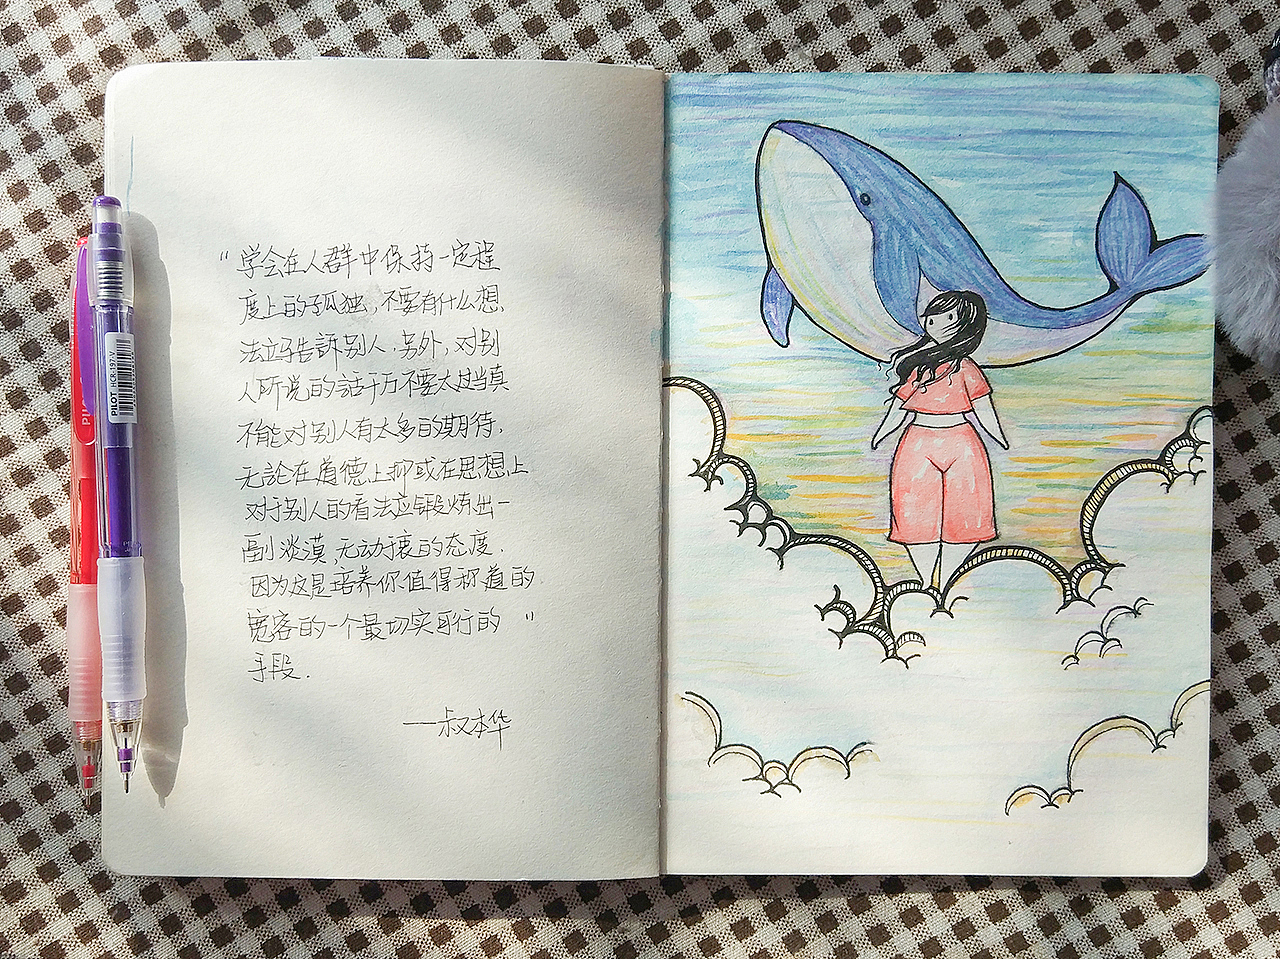 “学会在人群中保持一定程
度上的孤独,不要有什么想
法立马告訴别人,另外,对别
人所说的話千万不要太过当真
不能对别人有太多的期待,
无論在道德上抑或在思想上
对于别人的看法应锻炼出一
副淡漠,无动衷的态度.
因为这是培养你值得称道的
宽容的一个最切实可行的”
手段.
——叔本华
PILOT HCR-197-V